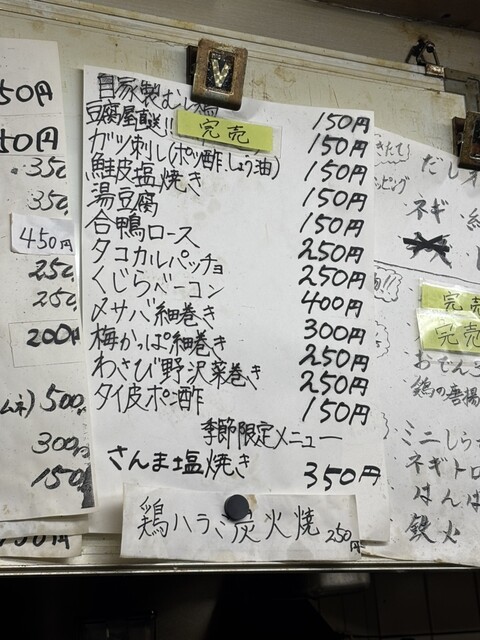 50円
50円
350
350
450円
250
250
200円
ムネ) 500
300円
150
自家製むし 150円
豆腐屋直送!! 完売 150円
ガツ刺し(ポン酢,しょう油) 150円
鮭皮塩焼き 150円
湯豆腐 150円
合鴨ロース 250円
タコカルパッチョ 250円
くじらベーコン 400円
〆サバ細巻き 300円
梅かっぱ細巻き 250円
わさび野沢菜巻き 250円
タイ皮ポン酢 150円
季節限定メニュー
さんま塩焼き 350円
鶏ハラミ炭火焼 250円
だし
ッピング
ネギ
完売
完売
おでん
鶏の唐揚
ミニしら
ネギトロ
はんぺ
鉄火